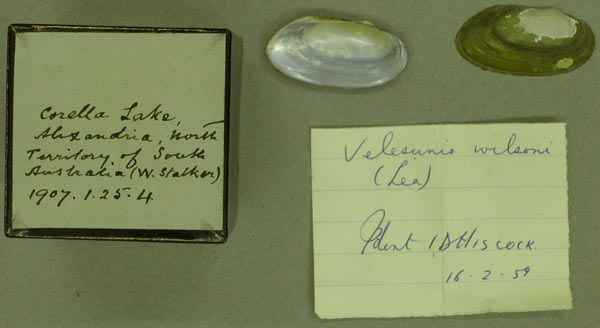 Corella Lake,
Alexandria, North
Territory of South
Australia (W. Stalker)
1907.1.25.4
Velesunio wilsoni
(Lea)
Ident I D Hiscock
16.2.59